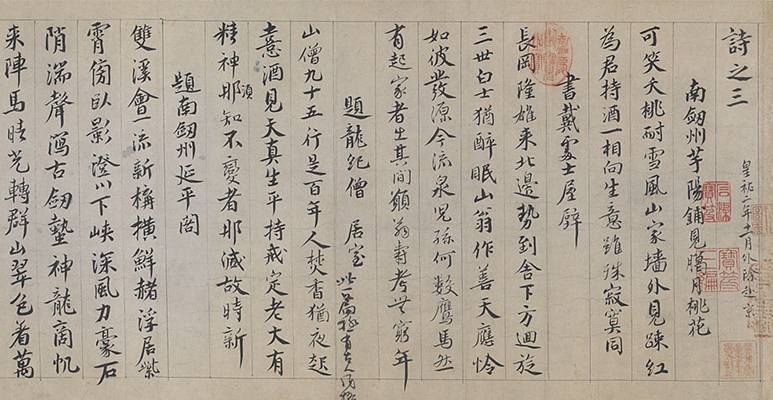 詩之三
皇祐二年十一月外除赴京
南劔州芋陽鋪見臘月桃花
可笑夭桃耐雪風山家墻外見踈紅
為君持酒一相向生意雖殊寂寞同
書戴處士屋壁
長岡隆雄來北邊勢到舍下方迴旋
三世白士猶醉眠山翁作善天應憐
如彼發源今流泉兒孫何數鷹馬然
有起家者出其間願翁壽考無窮年
題龍紀僧居室
此一篇極有古人風格
山僧九十五行是百年人焚香猶夜起
憙酒見天真生平持戒定老大有
精神那須知不變者那減故時新
題南劔州延平閣
雙溪會流新構橫鮮赭浮居紫
霄傍臥影澄川下峽深風力豪石
陗湍聲瀉古劔蟄神龍商帆
來陣馬晴光轉群山翠色着萬